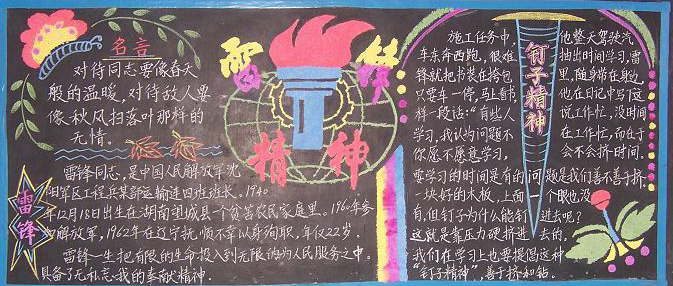 名言
对待同志要像春天
般的温暖,对待敌人要
像秋风扫落叶那样的
无情。
雷锋
精神
雷锋
雷锋同志,是中国人民解放军沈
阳军区工程兵某部运输连四班班长。1940
年12月18日出生在湖南望城县一个贫苦农民家庭里。1960年参
加解放军,1962年在辽宁抚顺不幸以身殉职,年仅22岁。
雷锋一生把有限的生命投入到无限的为人民服务之中。
具备了无私忘我的奉献精神.
钉子精神
施工任务中,
他整天驾驶汽
车东奔西跑,很难
抽出时间学习,雷
锋就把书装在挎包
里,随身带在身边,
只要车一停,马上看书,
他在日记中写下这
样一段话:“有些人
说工作忙,没时间
学习,我认为问题不
在工作忙,而在于
你愿不愿意学习,
会不会挤时间。
要学习的时间是有的问题是我们善不善于挤.
一块好的木板,上面一个眼也没
有,但钉子为什么能钉进去呢?
这就是靠压力硬挤进去的。
我们在学习上也要提倡这种
“钉子精神”,善于挤和钻。